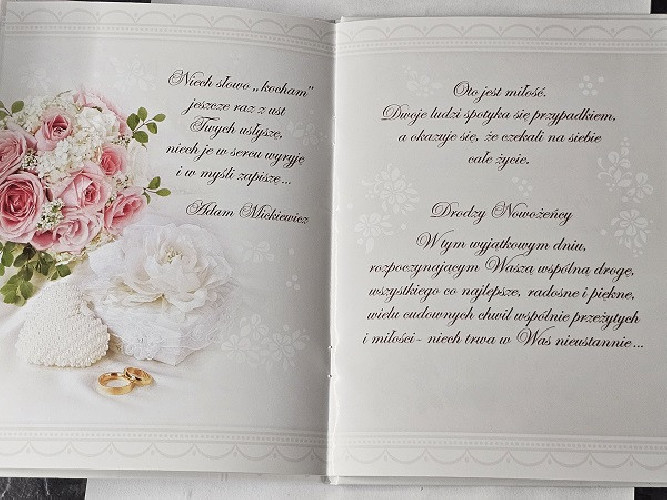 Niech słowo „kocham"
jeszcze raz z ust
Twych usłyszę,
niech je w sercu wyryję
i w myśli zapiszę...
Adam Mickiewicz
Oto jest miłość.
Dwoje ludzi spotyka się przypadkiem,
a okazuje się, że czekali na siebie
całe życie.
Drodzy Nowożeńcy
W tym wyjątkowym dniu,
rozpoczynającym Waszą wspólną drogę,
wszystkiego co najlepsze, radosne i piękne,
wielu cudownych chwil wspólnie przeżytych
i miłości - niech trwa w Was nieustannie...